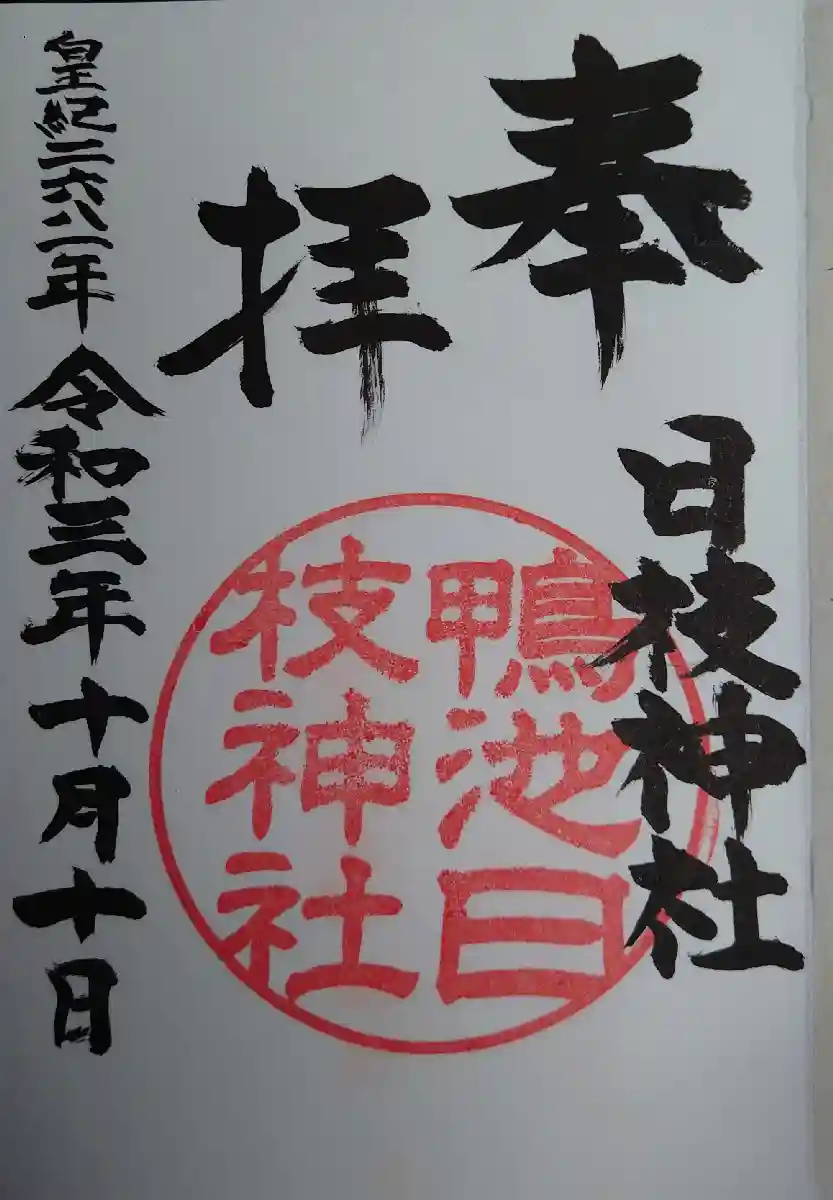 奉拝
日枝神社
鴨池日
枝神社
皇紀二六八一年令和三年十月十日